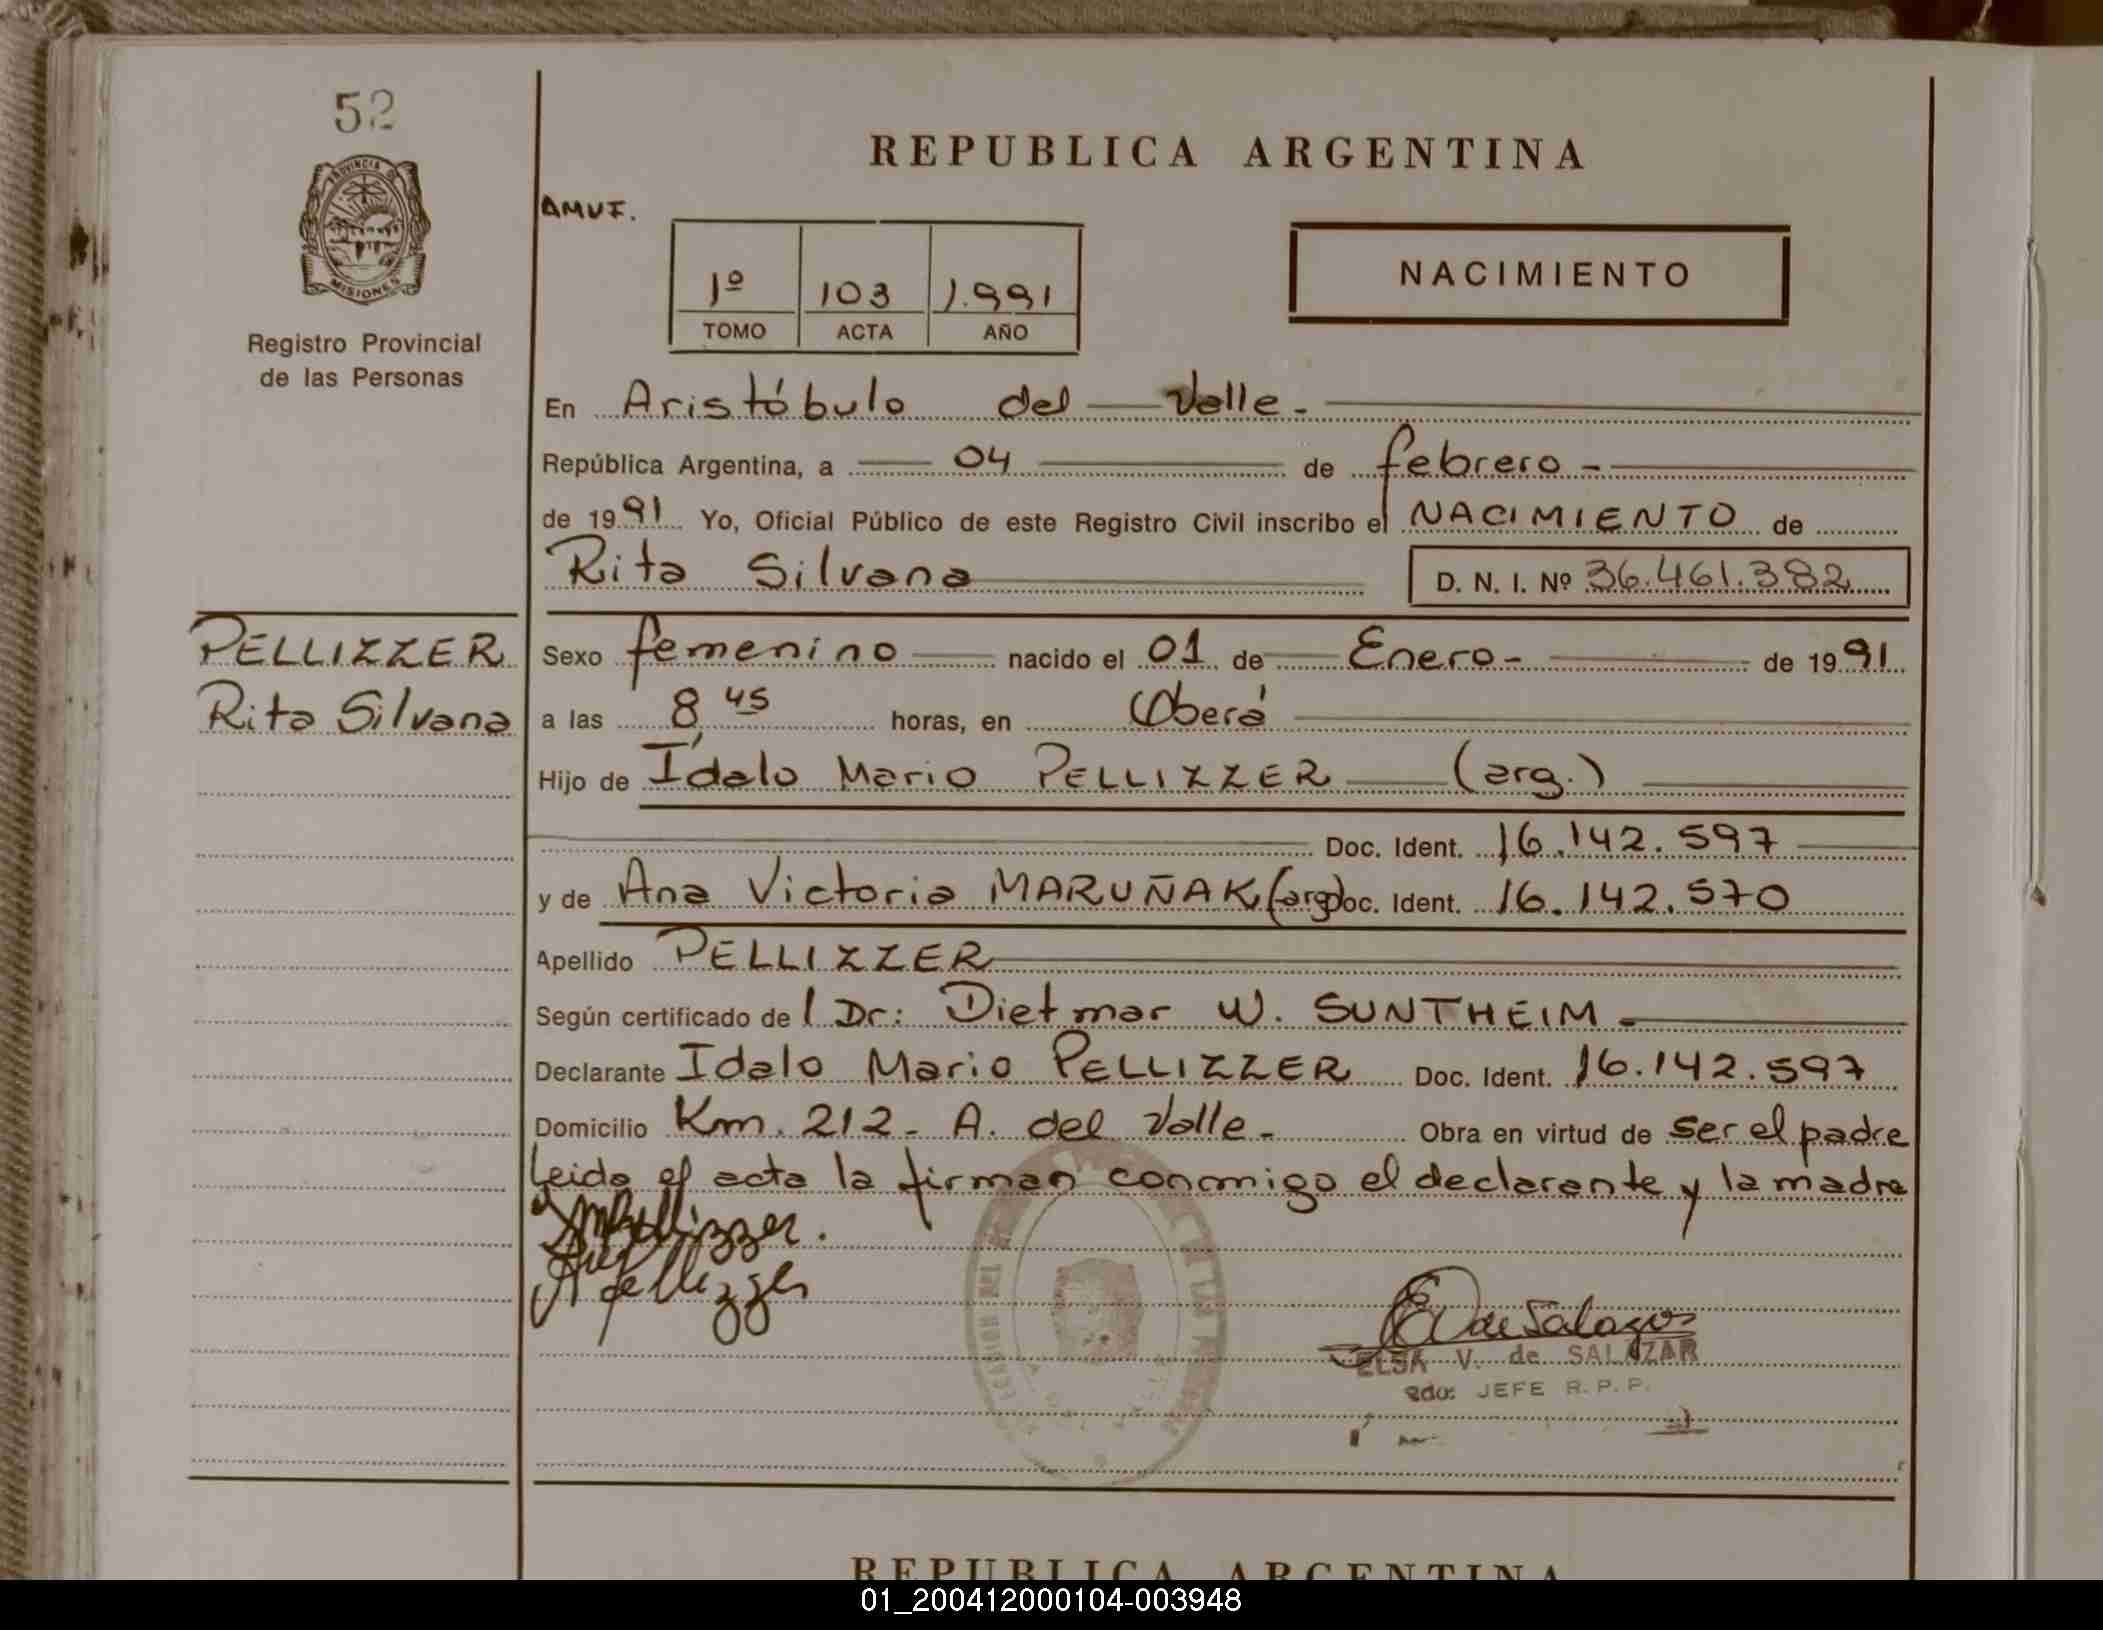 52
PROVINCIA D
MISIONES
Registro Provincial
de las Personas
REPUBLICA ARGENTINA
AMUI.
1º 103 1.991
TOMO ACTA AÑO
NACIMIENTO
En Aristóbulo del Valle.
República Argentina, a 04 de febrero
de 1991 Yo, Oficial Público de este Registro Civil inscribo el NACIMIENTO de
Rita Silvana D. N. I. Nº 36.461.382
PELLIZZER
Rita Silvana
Sexo femenino nacido el 01 de Enero de 1991
a las 8,45 horas, en Oberá
Hijo de Ídalo Mario PELLIZZER (arg.)
Doc. Ident. 16.142.597
y de Ana Victoria MARUÑAK (arg) Doc. Ident. 16.142.570
Apellido PELLIZZER
Según certificado del Dr: Dietmar W. SUNTHEIM
Declarante Idalo Mario PELLIZZER Doc. Ident. 16.142.597
Domicilio Km. 212 - A. del Valle - Obra en virtud de ser el padre
Leida el acta la firman conmigo el declarante y la madre
Pellizzer.
Pellizzer
E V de Salazar
ELSA V. de SALAZAR
2do: JEFE R. P. P.
REPUBLICA ARGENTINA
01_200412000104-003948